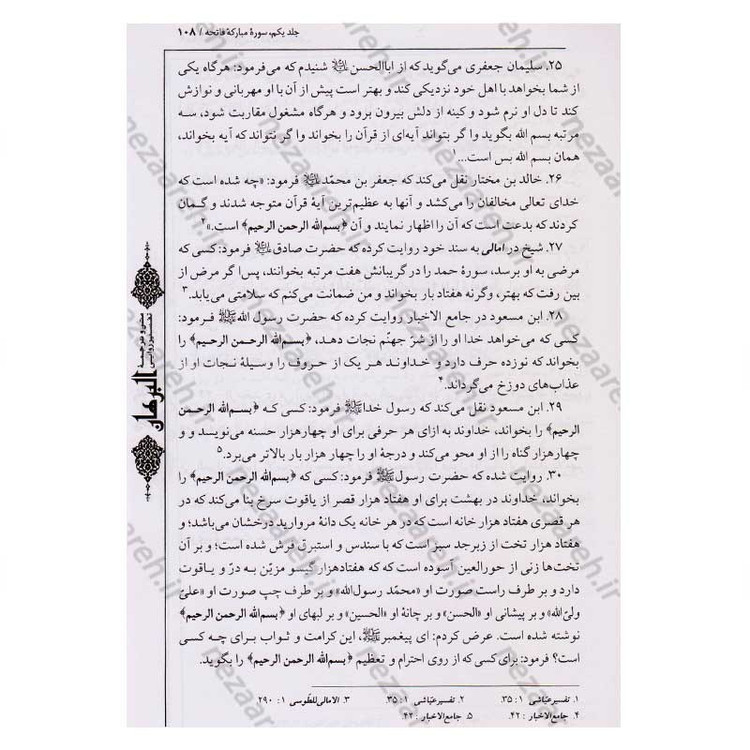 جلد یکم، سورهٔ مبارکهٔ فاتحه / ۱۰۸
۲۵. سلیمان جعفری می‌گوید که از اباالحسن ﷺ شنیدم که می‌فرمود: هرگاه یکی
از شما بخواهد با اهل خود نزدیکی کند و بهتر است پیش از آن با او مهربانی و نوازش
کند تا دل او نرم شود و کینه از دلش بیرون برود و هرگاه مشغول مقاربت شود، سه
مرتبه بسم الله بگوید وا گر بتواند آیه‌ای از قرآن را بخواند وا گر نتواند که آیه بخواند،
همان بسم الله بس است...۱
۲۶. خالد بن مختار نقل می‌کند که جعفر بن محمّد فرمود: «چه شده است که
خدای تعالی مخالفان را می‌کشد و آنها به عظیم‌ترین آیهٔ قرآن متوجه شدند و گمان
کردند که بدعت است که آن را اظهار نمایند و آن ﴿بسم‌الله الرحمن الرحیم﴾ است.»۲
۲۷. شیخ در امالی به سند خود روایت کرده که حضرت صادق فرمود: کسی که
مرضی به او برسد، سورهٔ حمد را در گریبانش هفت مرتبه بخوانند، پس‌ا گر مرض از
بین رفت که بهتر، وگرنه هفتاد بار بخواند و من ضمانت می‌کنم که سلامتی می‌یابد.۳
۲۸. ابن مسعود در جامع الاخبار روایت کرده که حضرت رسول الله ﷺ فرمود:
کسی که می‌خواهد خدا او را از شرّ جهنّم نجات دهد، ﴿بسم‌الله الرحمن الرحیم﴾ را
بخواند که نوزده حرف دارد و خداوند هر یک از حروف را وسیلهٔ نجات او از
عذاب‌های دوزخ می‌گرداند.۴
۲۹. ابن مسعود نقل می‌کند که رسول خدا ﷺ فرمود: کسی که ﴿بسم‌الله الرحمن
الرحیم﴾ را بخواند، خداوند به ازای هر حرفی برای او چهارهزار حسنه می‌نویسد و و
چهارهزار گناه را از او محو می‌کند و درجهٔ او را چهار هزار بار بالاتر می‌برد.۵
۳۰. روایت شده که حضرت رسول ﷺ فرمود: کسی که ﴿بسم‌الله الرحمن الرحیم﴾ را
بخواند، خداوند در بهشت برای او هفتاد هزار قصر از یاقوت سرخ بنا می‌کند که در
هر قصری هفتاد هزار خانه است که در هر خانه یک دانهٔ مروارید درخشان می‌باشد؛ و
هفتاد هزار تخت از زبرجد سبز است که با سندس و استبرق فرش شده است؛ و بر آن
تخت‌ها زنی از حورالعین آسوده است که که هفتادهزار گیسو مزیّن به درّ و یاقوت
دارد و بر طرف راست صورت او «محمّد رسول‌الله» و بر طرف چپ صورت او «علیّ
ولیّ الله» و بر پیشانی او «الحسن» و بر چانهٔ او «الحسین» و بر لبهای او ﴿بسم‌الله الرحمن الرحیم﴾
نوشته شده است. عرض کردم: ای پیغمبر ﷺ، این کرامت و ثواب برای چه کسی
است؟ فرمود: برای کسی که از روی احترام و تعظیم ﴿بسم‌الله الرحمن الرحیم﴾ را بگوید.
۱. تفسیر عیّاشی ۱: ۳۵. ۲. تفسیر عیّاشی ۱: ۳۵. ۳. الامالی‌للطّوسی ۱: ۲۹۰
۴. جامع‌الاخبار: ۴۲. ۵. جامع‌الاخبار: ۴۲.
متن و ترجمهٔ
تفسیر روایی
البرهان
nezaareh.ir